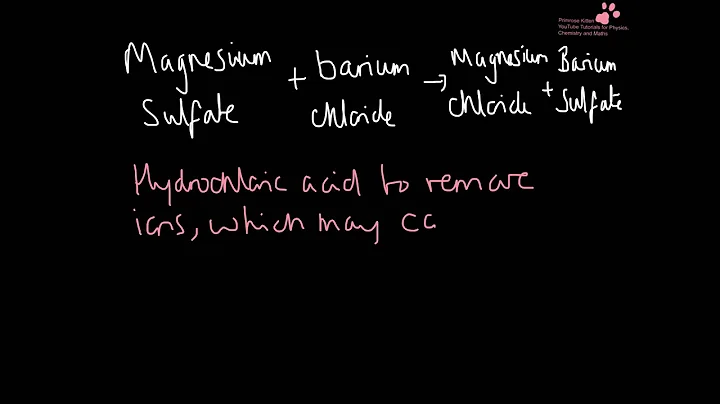 Primrose Kitten
YouTube Tutorials for Physics,
Chemistry and Maths
Magnesium Sulfate + barium chloride → Magnesium chloride + Barium Sulfate
Hydrochloric acid to remove
ions, which may ca